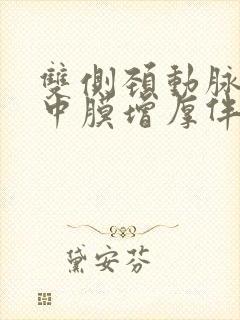 雙側頸動脈
中膜增厚伴
黛安芬